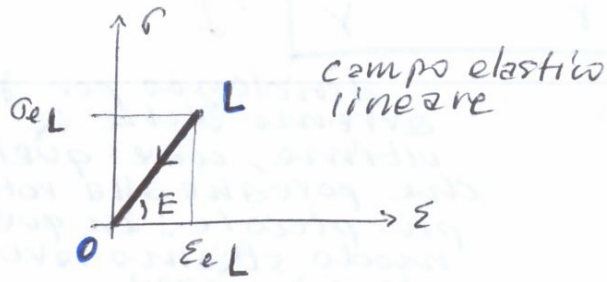 σ
campo elastico
lineare
σeL
L
E
ε
O
εeL